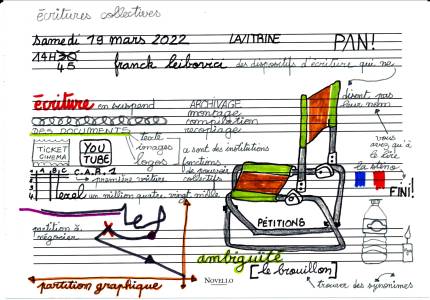 écritures collectives
samedi 19 mars 2022 LA VITRINE PAN!
14H30
45
franck leibovici des dispositifs d'écriture qui ne
disent pas
leur nom
écriture en suspend
ARCHIVAGE
montage
compilation
recopiage
DES DOCUMENTS
texte
images
logos
TICKET
CINEMA
YOU
TUBE
vous
avez qu'à
le lire
FINI!
A B C
C.A.B.1
1
2
première voiture
a sont des institutions
fonctions
collectifs
Lexel un million quatre vingt mille
partition à
négocier
PÉTITIONS
ambiguïté
[le brouillon]
trouver des synonymes
partition graphique
NOVELLO